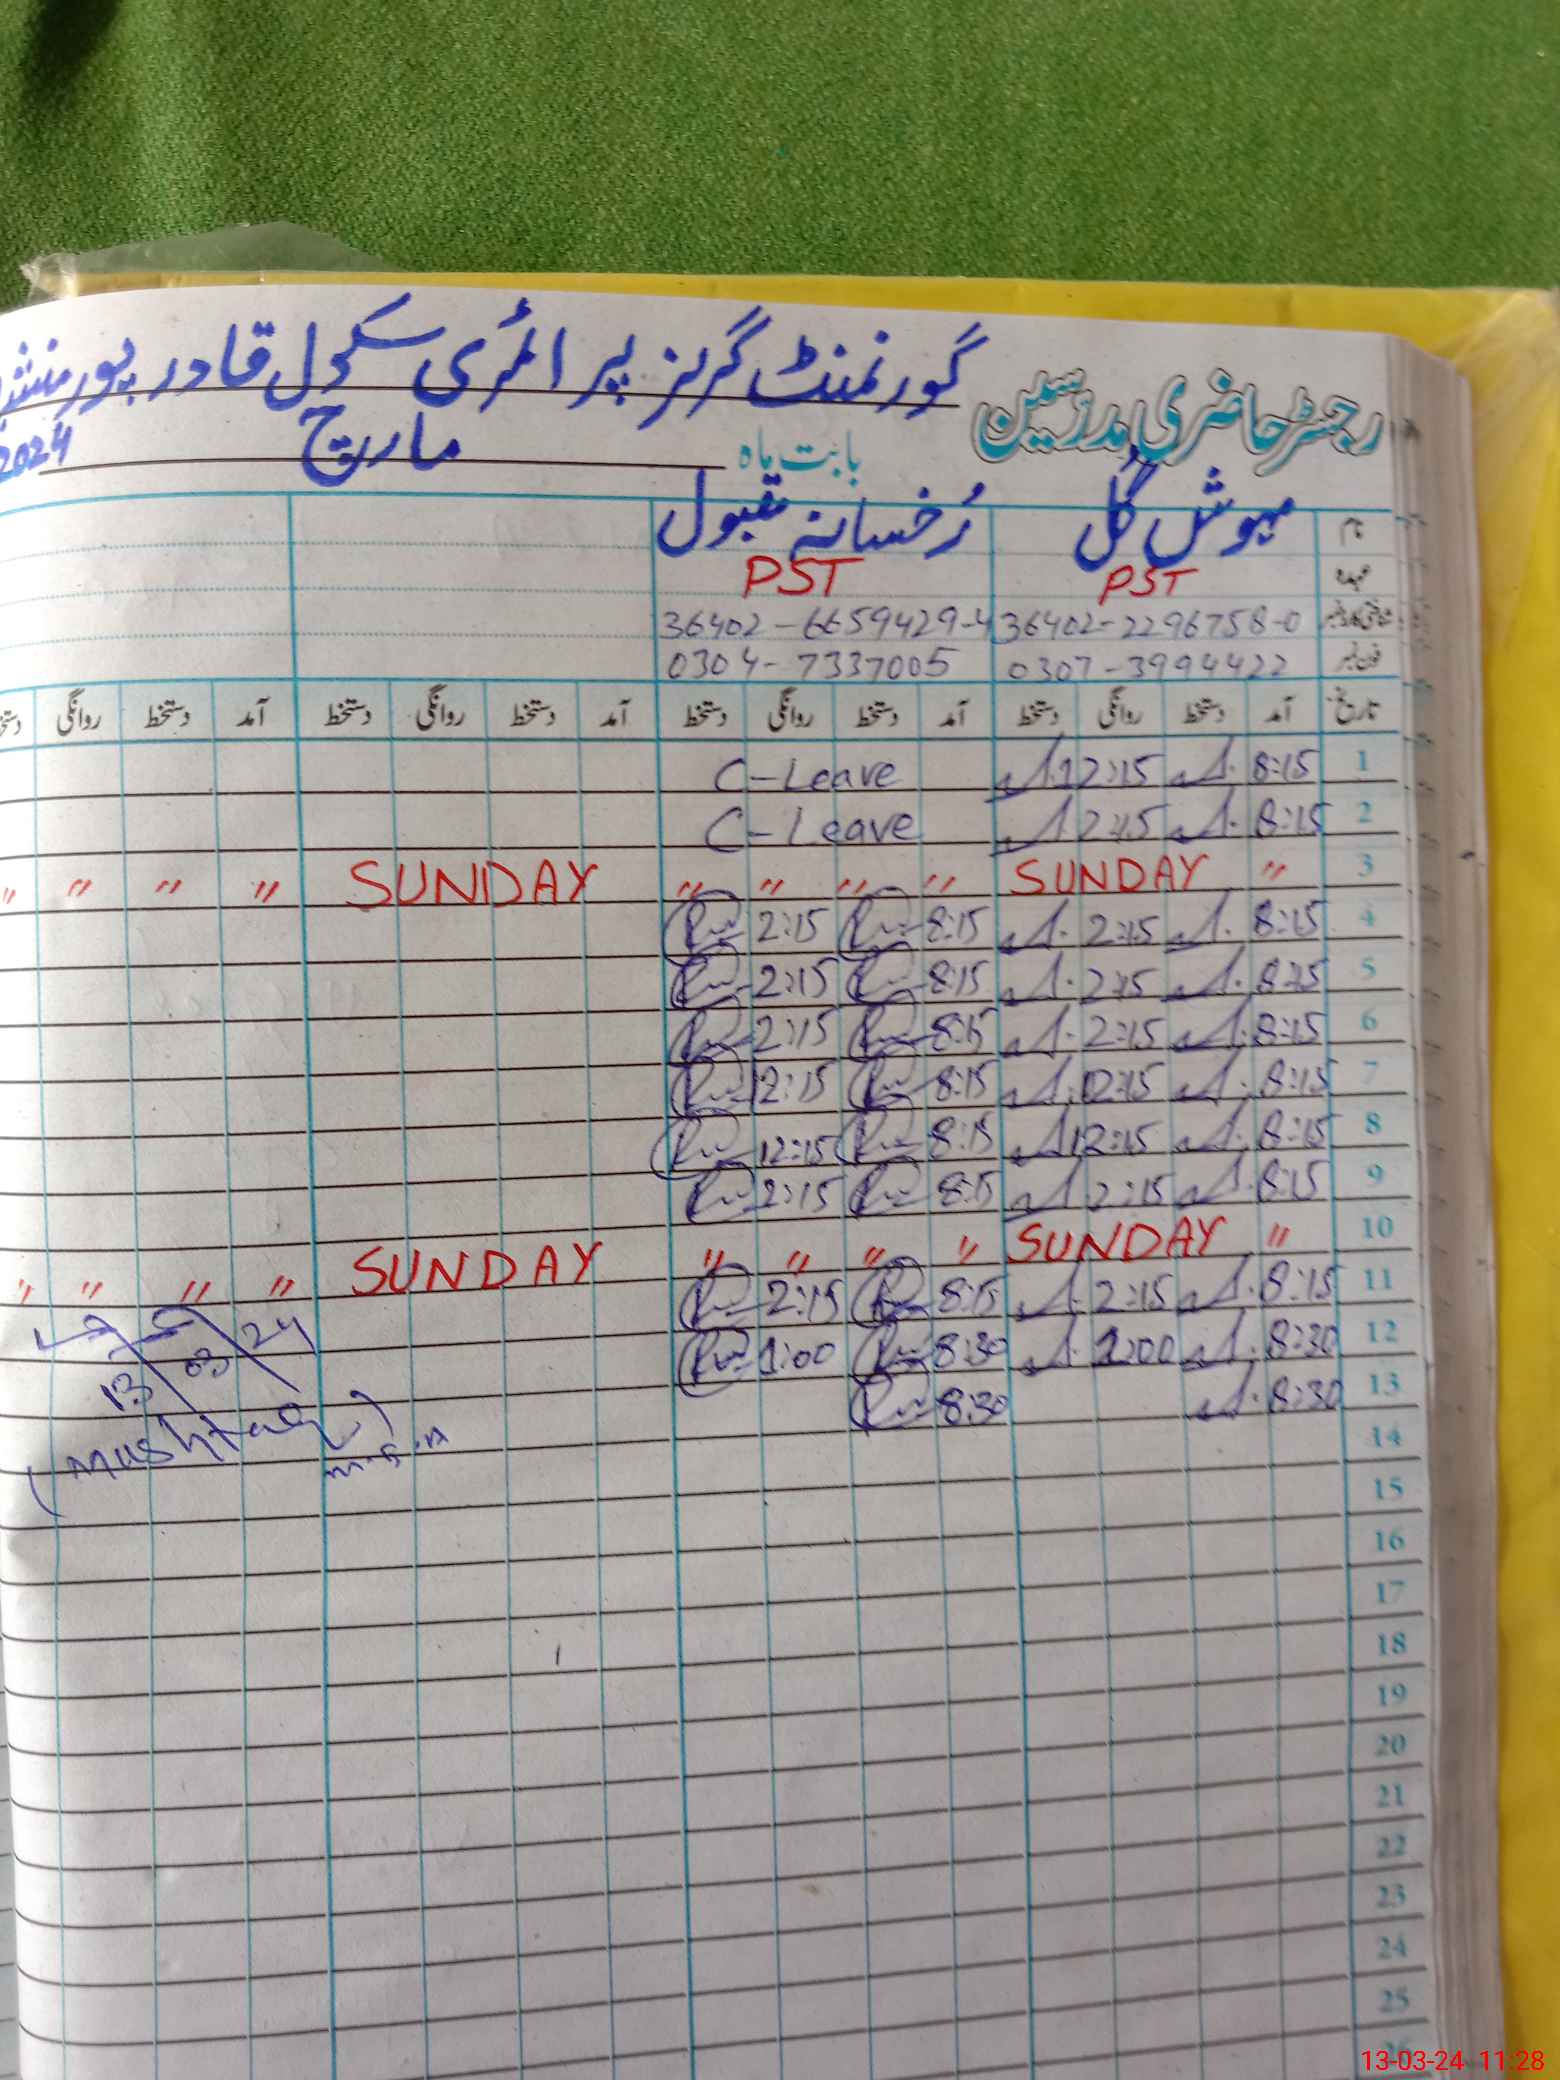 رجسٹر حاضری مدرسین گورنمنٹ گرلز پرائمری سکول قادر پور
بابت ماہ مارچ 2024
نام مہوش گل رخسانہ مقبول
عہدہ PST PST
شناختی کارڈ نمبر 36402-2296758-0 36402-6659429-4
فون نمبر 0307-3994422 0304-7337005
تاریخ آمد دستخط روانگی دستخط آمد دستخط روانگی دستخط آمد دستخط روانگی دستخط آمد دستخط روانگی
1 8:15 12:15 C-Leave
2 8:15 2:15 C-Leave
3 " SUNDAY " " " " SUNDAY " " " "
4 8:15 2:15 8:15 2:15
5 8:15 2:15 8:15 2:15
6 8:15 2:15 8:15 2:15
7 8:15 12:15 8:15 2:15
8 8:15 12:15 8:15 12:15
9 8:15 2:15 8:15 2:15
10 " SUNDAY " " " " SUNDAY " " " "
11 8:15 2:15 8:15 2:15
12 8:30 1:00 8:30 1:00
13 8:30 8:30
13 03 24
(Mushtaq)
14
15
16
17
18
19
20
21
22
23
24
25
26
13-03-24 11:28